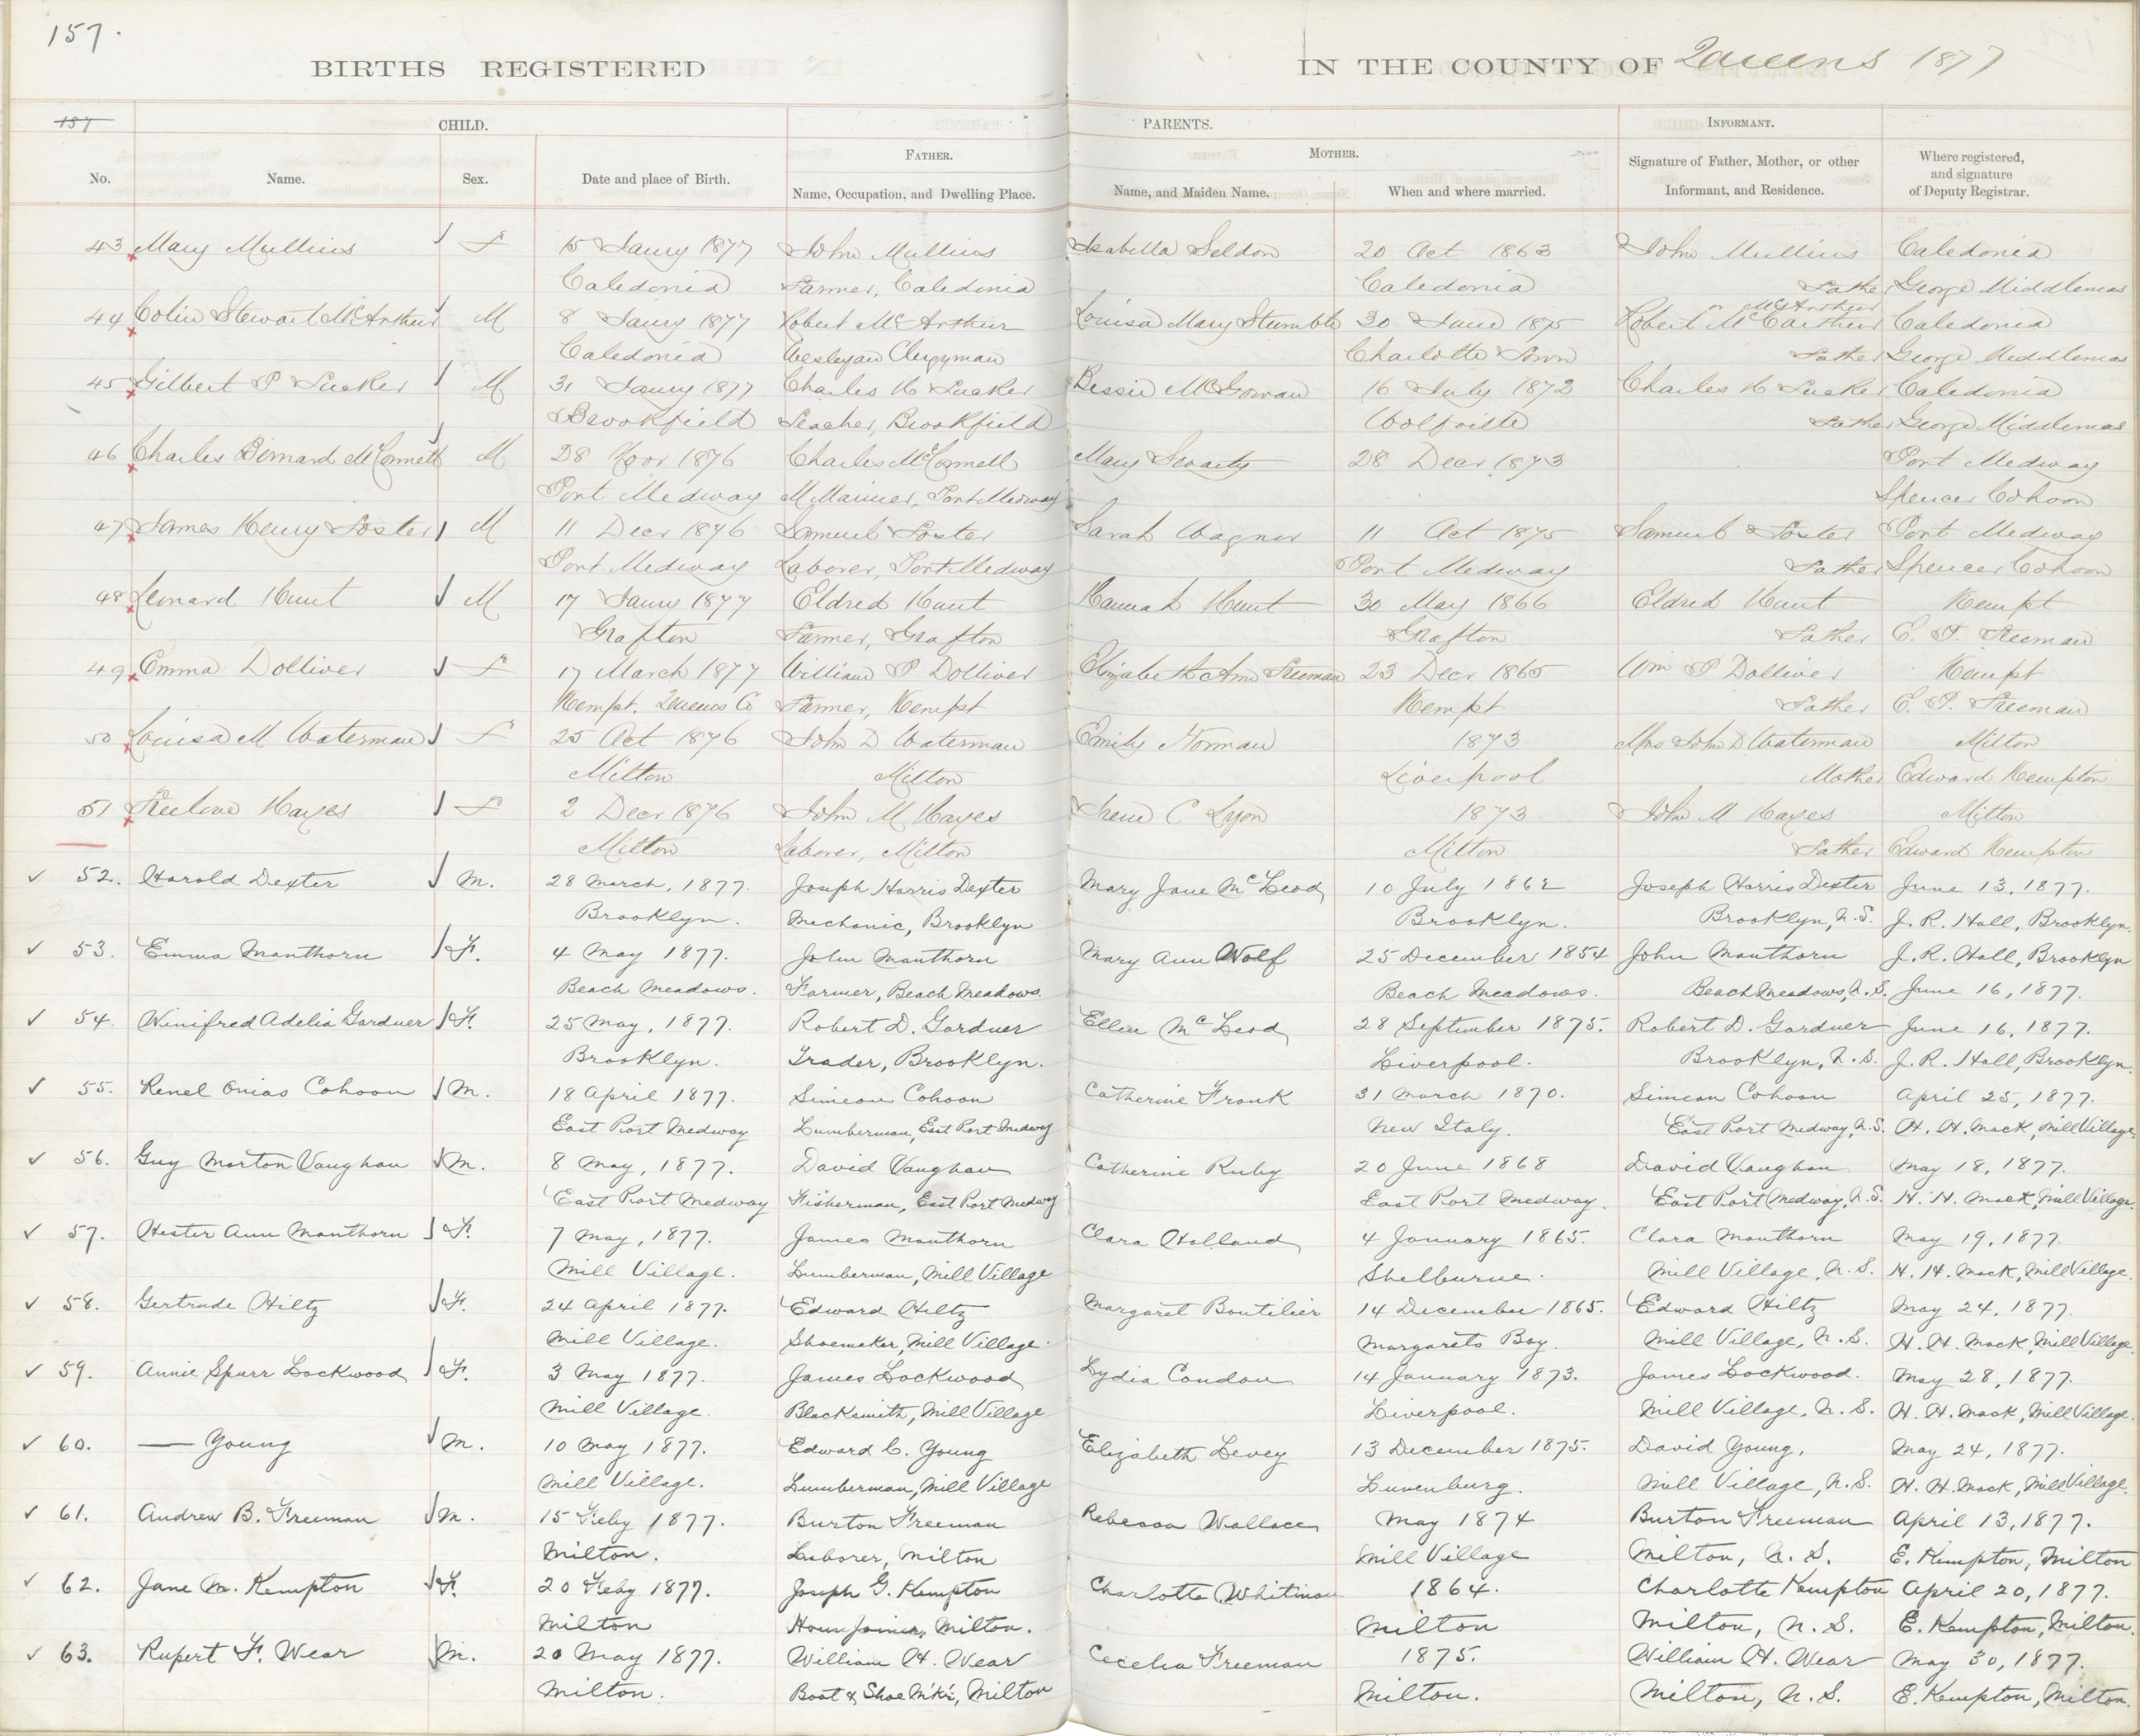 157.
BIRTHS REGISTERED IN THE COUNTY OF Queens 1877
157 CHILD. PARENTS. INFORMANT.
FATHER. MOTHER.
No. Name. Sex. Date and place of Birth. Name, Occupation, and Dwelling Place. Name, and Maiden Name. When and where married. Signature of Father, Mother, or other Informant, and Residence. Where registered, and signature of Deputy Registrar.
43 Mary Mullins F 15 Jany 1877 John Mullins Isabella Seldon 20 Oct 1863 John Mullins Caledonia
Caledonia Farmer, Caledonia Caledonia Father George Middlemas
44 Colin Stewart McArthur M 8 Jany 1877 Robert McArthur Louisa Mary Stumbles 30 June 1875 Robert McCarthur or McArthur Caledonia
Caledonia Wesleyan Clergyman Charlotte Town Father George Middlemas
45 Gilbert P Tucker M 31 Jany 1877 Charles H Tucker Bessie McGowan 16 July 1872 Charles H Tucker Caledonia
Brookfield Teacher, Brookfield Wolfville Father George Middlemas
46 Charles Bernard McConnell M 28 Nov 1876 Charles McConnell Mary Swarty 28 Decr 1873 Port Medway
Port Medway M Mariner, Port Medway Spencer Cohoon
47 James Henry Foster M 11 Decr 1876 Samuel Foster Sarah Wagner 11 Oct 1875 Samuel Foster Port Medway
Port Medway Laborer, Port Medway Port Medway Father Spencer Cohoon
48 Leonard Hunt M 17 Jany 1877 Eldred Hunt Hannah Hunt 30 May 1866 Eldred Hunt Kempt
Grafton Farmer, Grafton Grafton Father E. F. Freeman
49 Emma Dolliver F 17 March 1877 William P Dolliver Elizabeth Ann Freeman 23 Decr 1865 Wm P Dolliver Kempt
Kempt, Queens Co Farmer, Kempt Kempt Father E. F. Freeman
50 Louisa M Waterman F 25 Oct 1876 John D Waterman Emily Norman 1873 Mrs John D Waterman Milton
Milton Milton Liverpool Mother Edward Kempton
51 Freelove Hayes F 2 Decr 1876 John M Hayes Irene C Lyon 1873 John M Hayes Milton
Milton Laborer, Milton Milton Father Edward Kempton
52. Harold Dexter M. 28 March, 1877. Joseph Harris Dexter Mary Jane McLeod 10 July 1862 Joseph Harris Dexter June 13, 1877.
Brooklyn. Mechanic, Brooklyn Brooklyn. Brooklyn, N.S. J. R. Hall, Brooklyn.
53. Emma Manthorn F. 4 May 1877. John Manthorn Mary Ann Wolf 25 December 1854 John Manthorn J. R. Hall, Brooklyn
Beach Meadows. Farmer, Beach Meadows. Beach Meadows. Beach Meadows, N.S. June 16, 1877.
54. Winifred Adelia Gardner F. 25 May, 1877. Robert D. Gardner Ellen McLeod 28 September 1875. Robert D. Gardner June 16, 1877.
Brooklyn. Trader, Brooklyn. Liverpool. Brooklyn, N.S. J. R. Hall, Brooklyn.
55. Renel Onias Cohoon M. 18 April 1877. Simeon Cohoon Catherine Fronk 31 March 1870. Simeon Cohoon April 25, 1877.
East Port Medway Lumberman, East Port Medway New Italy. East Port Medway, N.S. H. H. Mack, Mill Village.
56. Guy Morton Vaughan M. 8 May, 1877. David Vaughan Catherine Ruby 20 June 1868 David Vaughan May 18, 1877.
East Port Medway Fisherman, East Port Medway East Port Medway. East Port Medway, N.S. H. H. Mack, Mill Village.
57. Hester Ann Manthorn F. 7 May, 1877. James Manthorn Clara Holland 4 January 1865. Clara Manthorn May 19, 1877.
Mill Village. Lumberman, Mill Village Shelburne. Mill Village, N.S. H. H. Mack, Mill Village.
58. Gertrude Hiltz F. 24 April 1877. Edward Hiltz Margaret Boutilier 14 December 1865. Edward Hiltz May 24, 1877.
Mill Village. Shoemaker, Mill Village. Margarets Bay. Mill Village, N.S. H. H. Mack, Mill Village.
59. Annie Spurr Lockwood F. 3 May 1877. James Lockwood Lydia Condon 14 January 1873. James Lockwood. May 28, 1877.
Mill Village. Blacksmith, Mill Village Liverpool. Mill Village, N.S. H. H. Mack, Mill Village.
60. — Young M. 10 May 1877. Edward C. Young Elizabeth Levey 13 December 1875. David Young, May 24, 1877.
Mill Village. Lumberman, Mill Village Lunenburg. Mill Village, N.S. H. H. Mack, Mill Village.
61. Andrew B. Freeman M. 15 Feby 1877. Burton Freeman Rebecca Wallace May 1874 Burton Freeman April 13, 1877.
Milton. Laborer, Milton Mill Village Milton, N.S. E. Kempton, Milton
62. Jane M. Kempton F. 20 Feby 1877. Joseph G. Kempton Charlotte Whitman 1864. Charlotte Kempton April 20, 1877.
Milton House Joiner, Milton. Milton Milton, N.S. E. Kempton, Milton.
63. Rupert F. Wear M. 20 May 1877. William H. Wear Cecelia Freeman 1875. William H. Wear May 30, 1877.
Milton. Boot & Shoe Mk'r, Milton Milton. Milton, N.S. E. Kempton, Milton.